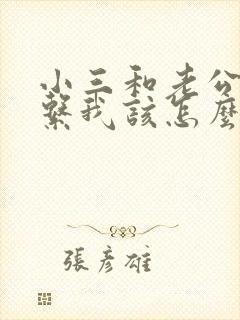 小三和老公
繫我該怎麼
張彥雄